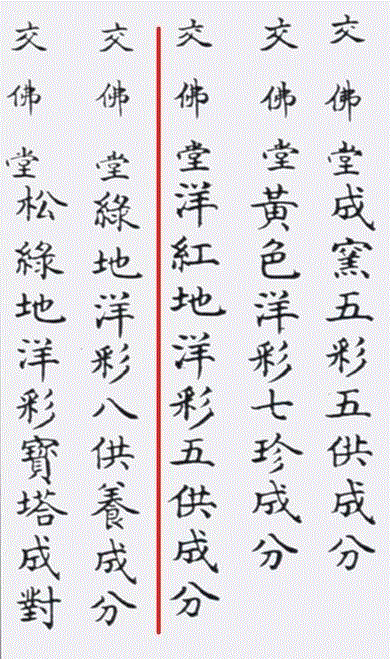 交佛堂成窯五彩五供成分
交佛堂黃色洋彩七珍成分
交佛堂洋紅地洋彩五供成分
交佛堂綠地洋彩八供養成分
交佛堂松綠地洋彩寶塔成對